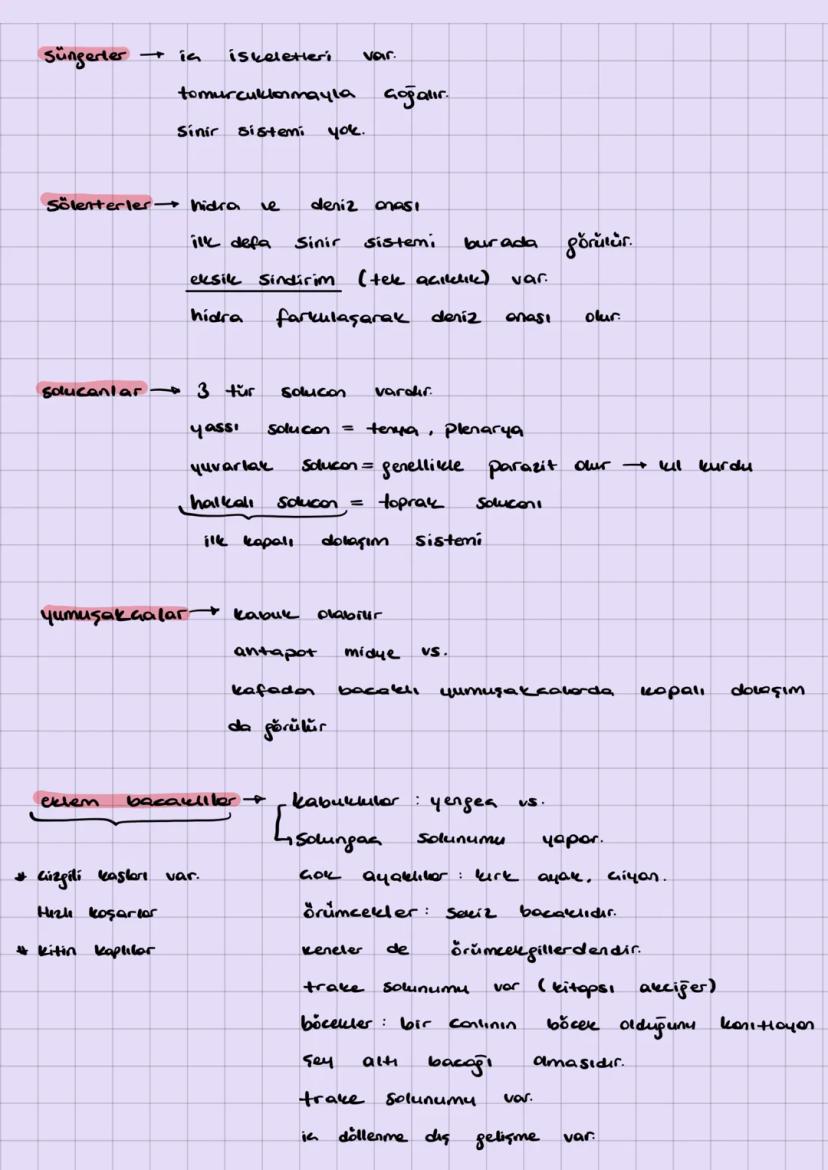 süngerler → iç iskeletleri var.
tomurcuklanmayla çoğalır.
sinir sistemi yok.
sölenterler → hidra ve deniz anası
ilk defa sinir sistemi burada görülür.
eksik sindirim (tek açıklık) var.
hidra farkulaşarak deniz anası olur.
solucanlar → 3 tür solucan vardır.
yassı solucan = tenya, plenarya
yuvarlak solucan = genellikle parazit olur → kıl kurdu
halkalı solucan = toprak solucanı
ilk kapalı dolaşım sistemi
yumuşakçalar → kabuk olabilir
antapot midye vs.
kafadan bacaklı yumuşakçalarda kapalı dolaşım
da görülür
eklem bacaklılar → kabuklular : yengeç vs.
↳ solungaç solunumu yapar.
* çizgili kasları var. çok ayaklılar : kırk ayak, çiyan.
Hızlı koşarlar örümcekler : sekiz bacaklıdır.
* kitin kaplılar keneler de örümcekgillerdendir.
trake solunumu var (kitapsı akciğer)
böcekler : bir canlının böcek olduğunu kanıtlayan
şey altı bacağı olmasıdır.
trake solunumu var.
iç döllenme dış gelişme var.